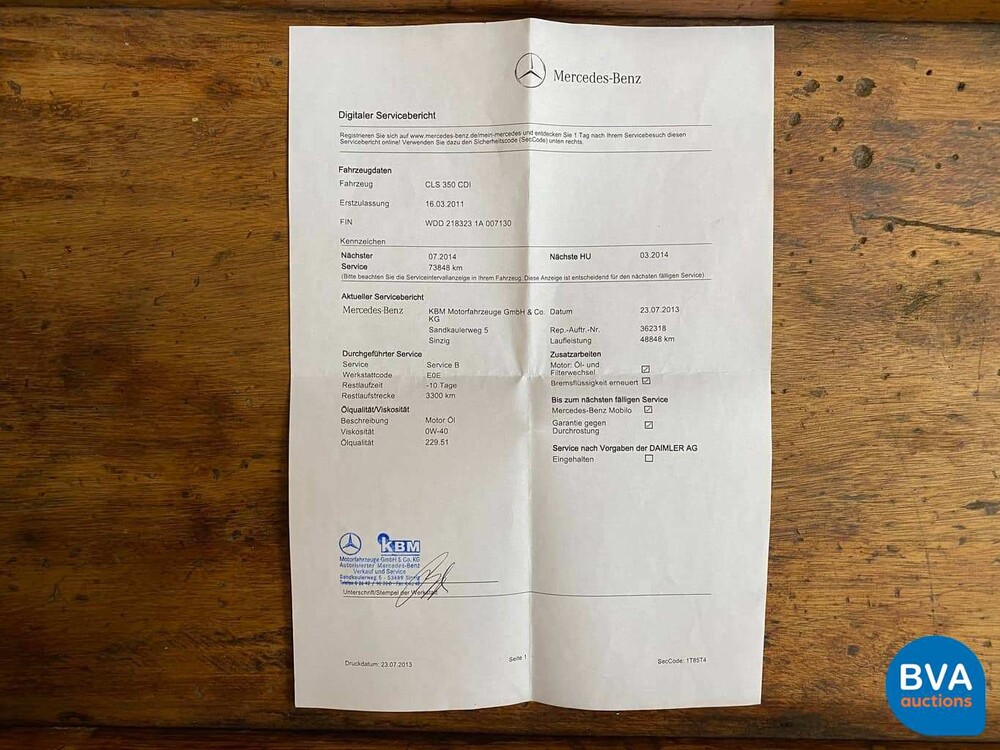 Mercedes-Benz
Digitaler Servicebericht
Registrieren Sie sich auf www.mercedes-benz.de/mein-mercedes und entdecken Sie 1 Tag nach Ihrem Servicebesuch diesen
Servicebericht online! Verwenden Sie dazu den Sicherheitscode (SecCode) unten rechts.
Fahrzeugdaten
Fahrzeug CLS 350 CDI
Erstzulassung 16.03.2011
FIN WDD 218323 1A 007130
Kennzeichen
Nächster 07.2014 Nächste HU 03.2014
Service 73848 km
(Bitte beachten Sie die Serviceintervallanzeige in Ihrem Fahrzeug. Diese Anzeige ist entscheidend für den nächsten fälligen Service)
Aktueller Servicebericht
Mercedes-Benz KBM Motorfahrzeuge GmbH & Co. Datum 23.07.2013
KG
Sandkaulerweg 5 Rep.-Auftr.-Nr. 362318
Sinzig Laufleistung 48848 km
Durchgeführter Service Zusatzarbeiten
Service Service B Motor: Öl- und
Filterwechsel
Werkstattcode E0E
Restlaufzeit -10 Tage Bremsflüssigkeit erneuert
Restlaufstrecke 3300 km Bis zum nächsten fälligen Service
Ölqualität/Viskosität Mercedes-Benz Mobilo
Beschreibung Motor Öl Garantie gegen
Durchrostung
Viskosität 0W-40
Ölqualität 229.51 Service nach Vorgaben der DAIMLER AG
Eingehalten
KBM
Motorfahrzeuge GmbH & Co. KG
Autorisierter Mercedes-Benz
Verkauf und Service
Sandkaulerweg 5 - 53489 Sinzig
Unterschrift/Stempel der Werkstatt
Druckdatum: 23.07.2013 Seite 1 SecCode: 1T85T4
BVA
auctions